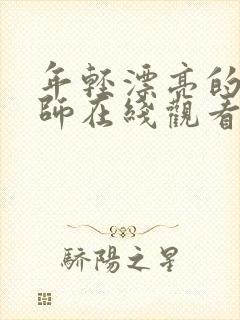 年輕漂亮的
師在綫觀看
驕陽之星